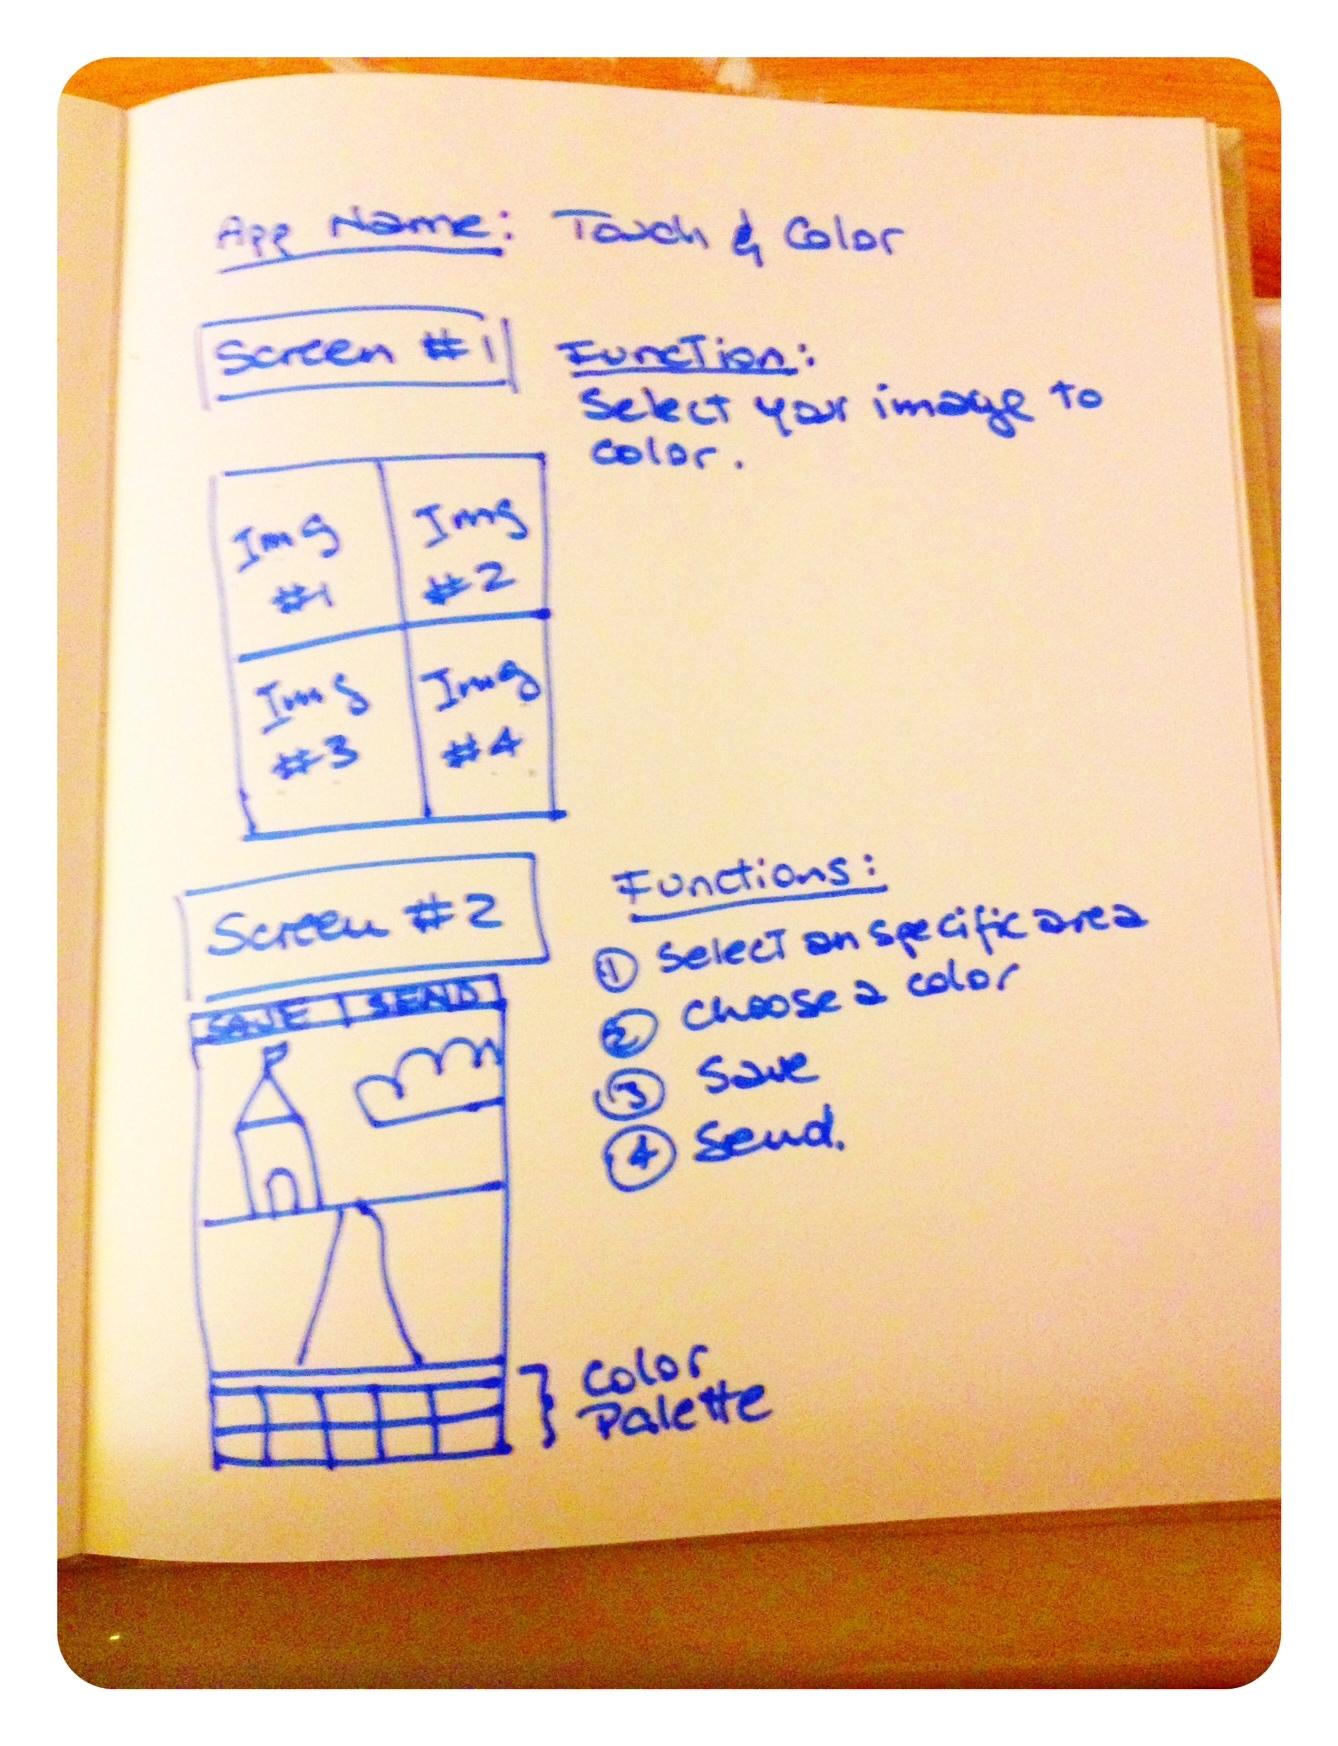 App Name: Touch & Color
Screen #1
Function:
Select your image to
color.
Img
#1
Img
#2
Img
#3
Img
#4
Screen #2
Functions:
1 Select an specific area
2 choose a color
3 Save
4 Send.
SAVE | SEND
Color
Palette